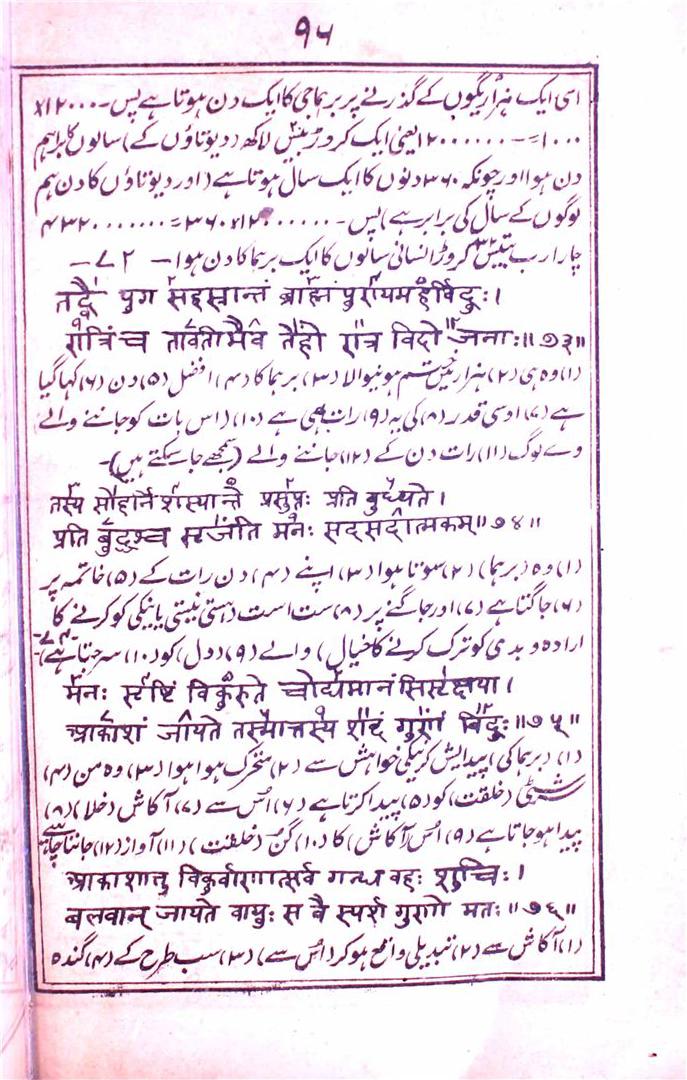 १५
اسی ایک ہزار یگوں کے گذرنے پر برہماجی کا ایک دن ہوتا ہے پس - ۱۲۰۰۰×
۱۰۰۰ = ۱۲۰۰۰۰۰۰ یعنی ایک کروڑ بیس لاکھ (دیوتاؤں کے) سالوں کا براہم
دن ہوا اور چونکہ ۳۶۰ دنوں کا ایک سال ہوتا ہے (اور دیوتاؤں کا دن ہم
لوگوں کے سال کی برابر ہے) پس - ۱۲۰۰۰۰۰۰×۳۶۰ = ۴۳۲۰۰۰۰۰۰۰
چار ارب بتیس کروڑ انسانی سالوں کا ایک برہما کا دن ہوا - ۷۲ -
तद्वै युग सहस्रान्तं ब्राह्मं पुरायमहर्विदुः।
रात्रिंच तावतीमेव तेहो रात्र विदो जनाः॥७३॥
(۱) وہ ہی (۲) ہزار یگ میں ختم ہونیوالا (۳) برہما کا (۴) افضل (۵) دن (۶) کہا گیا
ہے (۷) اوسی قدر (۸) کی یہ (۹) رات بھی ہے (۱۰) (اس بات کو جاننے والے)
وے لوگ (۱۱) رات دن کے (۱۲) جاننے والے (سمجھے جا سکتے ہیں) -
तस्य सोहर्नि शस्यान्ते प्रसुप्तः प्रति बुध्यते।
प्रति बुद्धश्च सृजति मनः सदसदात्मकम्॥७४॥
(۱) وہ (برہما) (۲) سوتا ہوا (۳) اپنے (۴) دن رات کے (۵) خاتمہ پر
(۶) جاگتا ہے (۷) اور جاگنے پر (۸) ست است (ہستی نیستی یا نیکی کو کرنے کا
ارادہ و بدی کو ترک کرنے کا خیال) والے (۹) (دل) کو (۱۰) سرجتا ہے) - ۷۴ -
मनः सृष्टिं विकुरुते चोद्यमानं सिसृक्षया।
आकाशं जायते तस्मात्तस्य शब्दं गुणं विदुः॥७५॥
(۱) (برہما کی) پیدایش کرنیکی خواہش سے (۲) متحرک ہوا ہوا (۳) وہ من (۴)
سرشٹی (خلقت) کو (۵) پیدا کرتا ہے (۶) اس سے (۷) آکاش (خلا) (۸)
پیدا ہوجاتا ہے (۹) اس (آکاش) کا (۱۰) گن (خلقت) (۱۱) آواز (۱۲) جاننا چاہئے
आकाशात्तु विकुर्वाणात्सर्व गन्ध वहः शुचिः।
बलवान् जायते वायुः स वै स्पर्श गुणो मतः॥७६॥
(۱) آکاش سے (۲) تبدیلی واقع ہو کر (اس سے) (۳) سب طرح کے (۴) گندھ